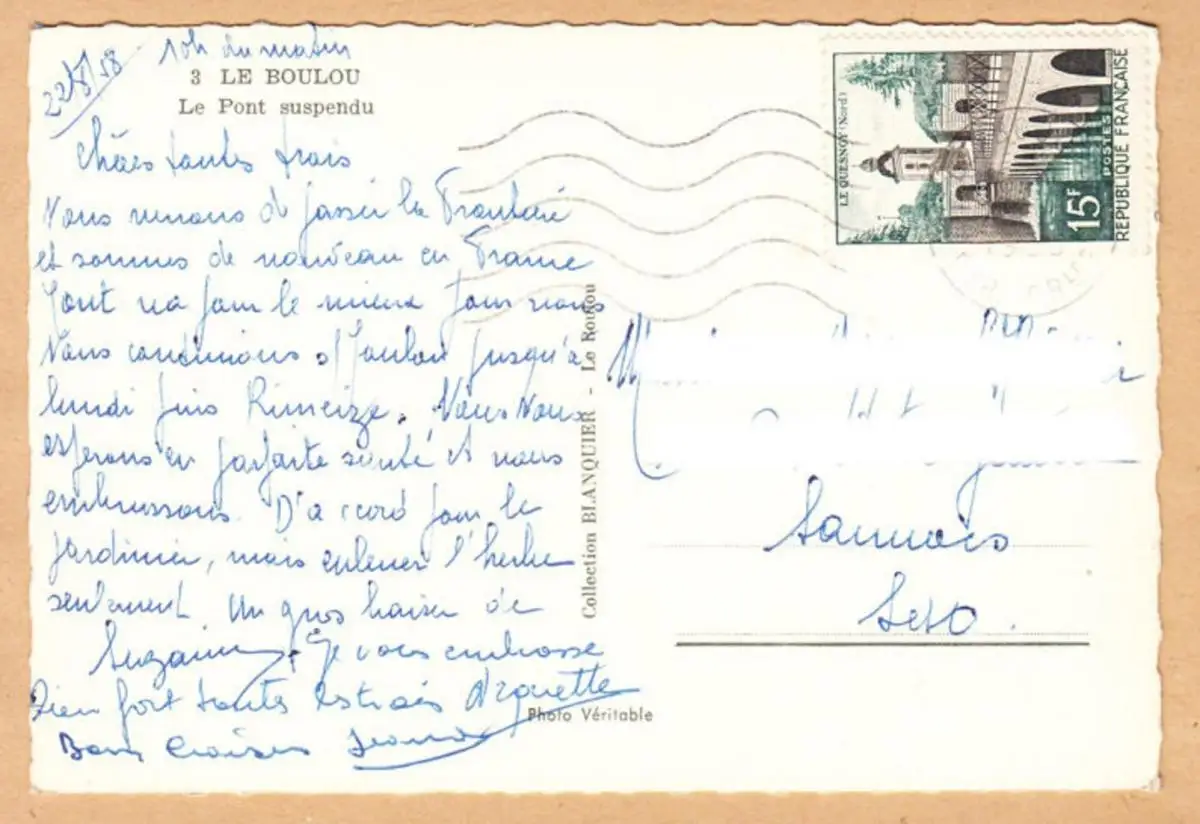 22/8/58 10h du matin
3 LE BOULOU
Le Pont suspendu
Chères toutes trois
Nous venons de passer la Frontière
et sommes de nouveau en France
Tout va pour le mieux pour nous
Nous continuons s/ Toulon jusqu'à
lundi puis Rimeize. Nous vous
espérons en parfaite santé et vous
embrassons. D'accord pour le
jardinier, mais enlever l'herbe
seulement. Un gros baiser de
Suzanne. Je vous embrasse
bien fort toutes les trois Arquette
Bons baisers
Collection BLANQUIER - Le Boulou
Photo Véritable
LE QUESNOY (Nord)
15F
POSTES
REPUBLIQUE FRANÇAISE
Sannois
S et O.